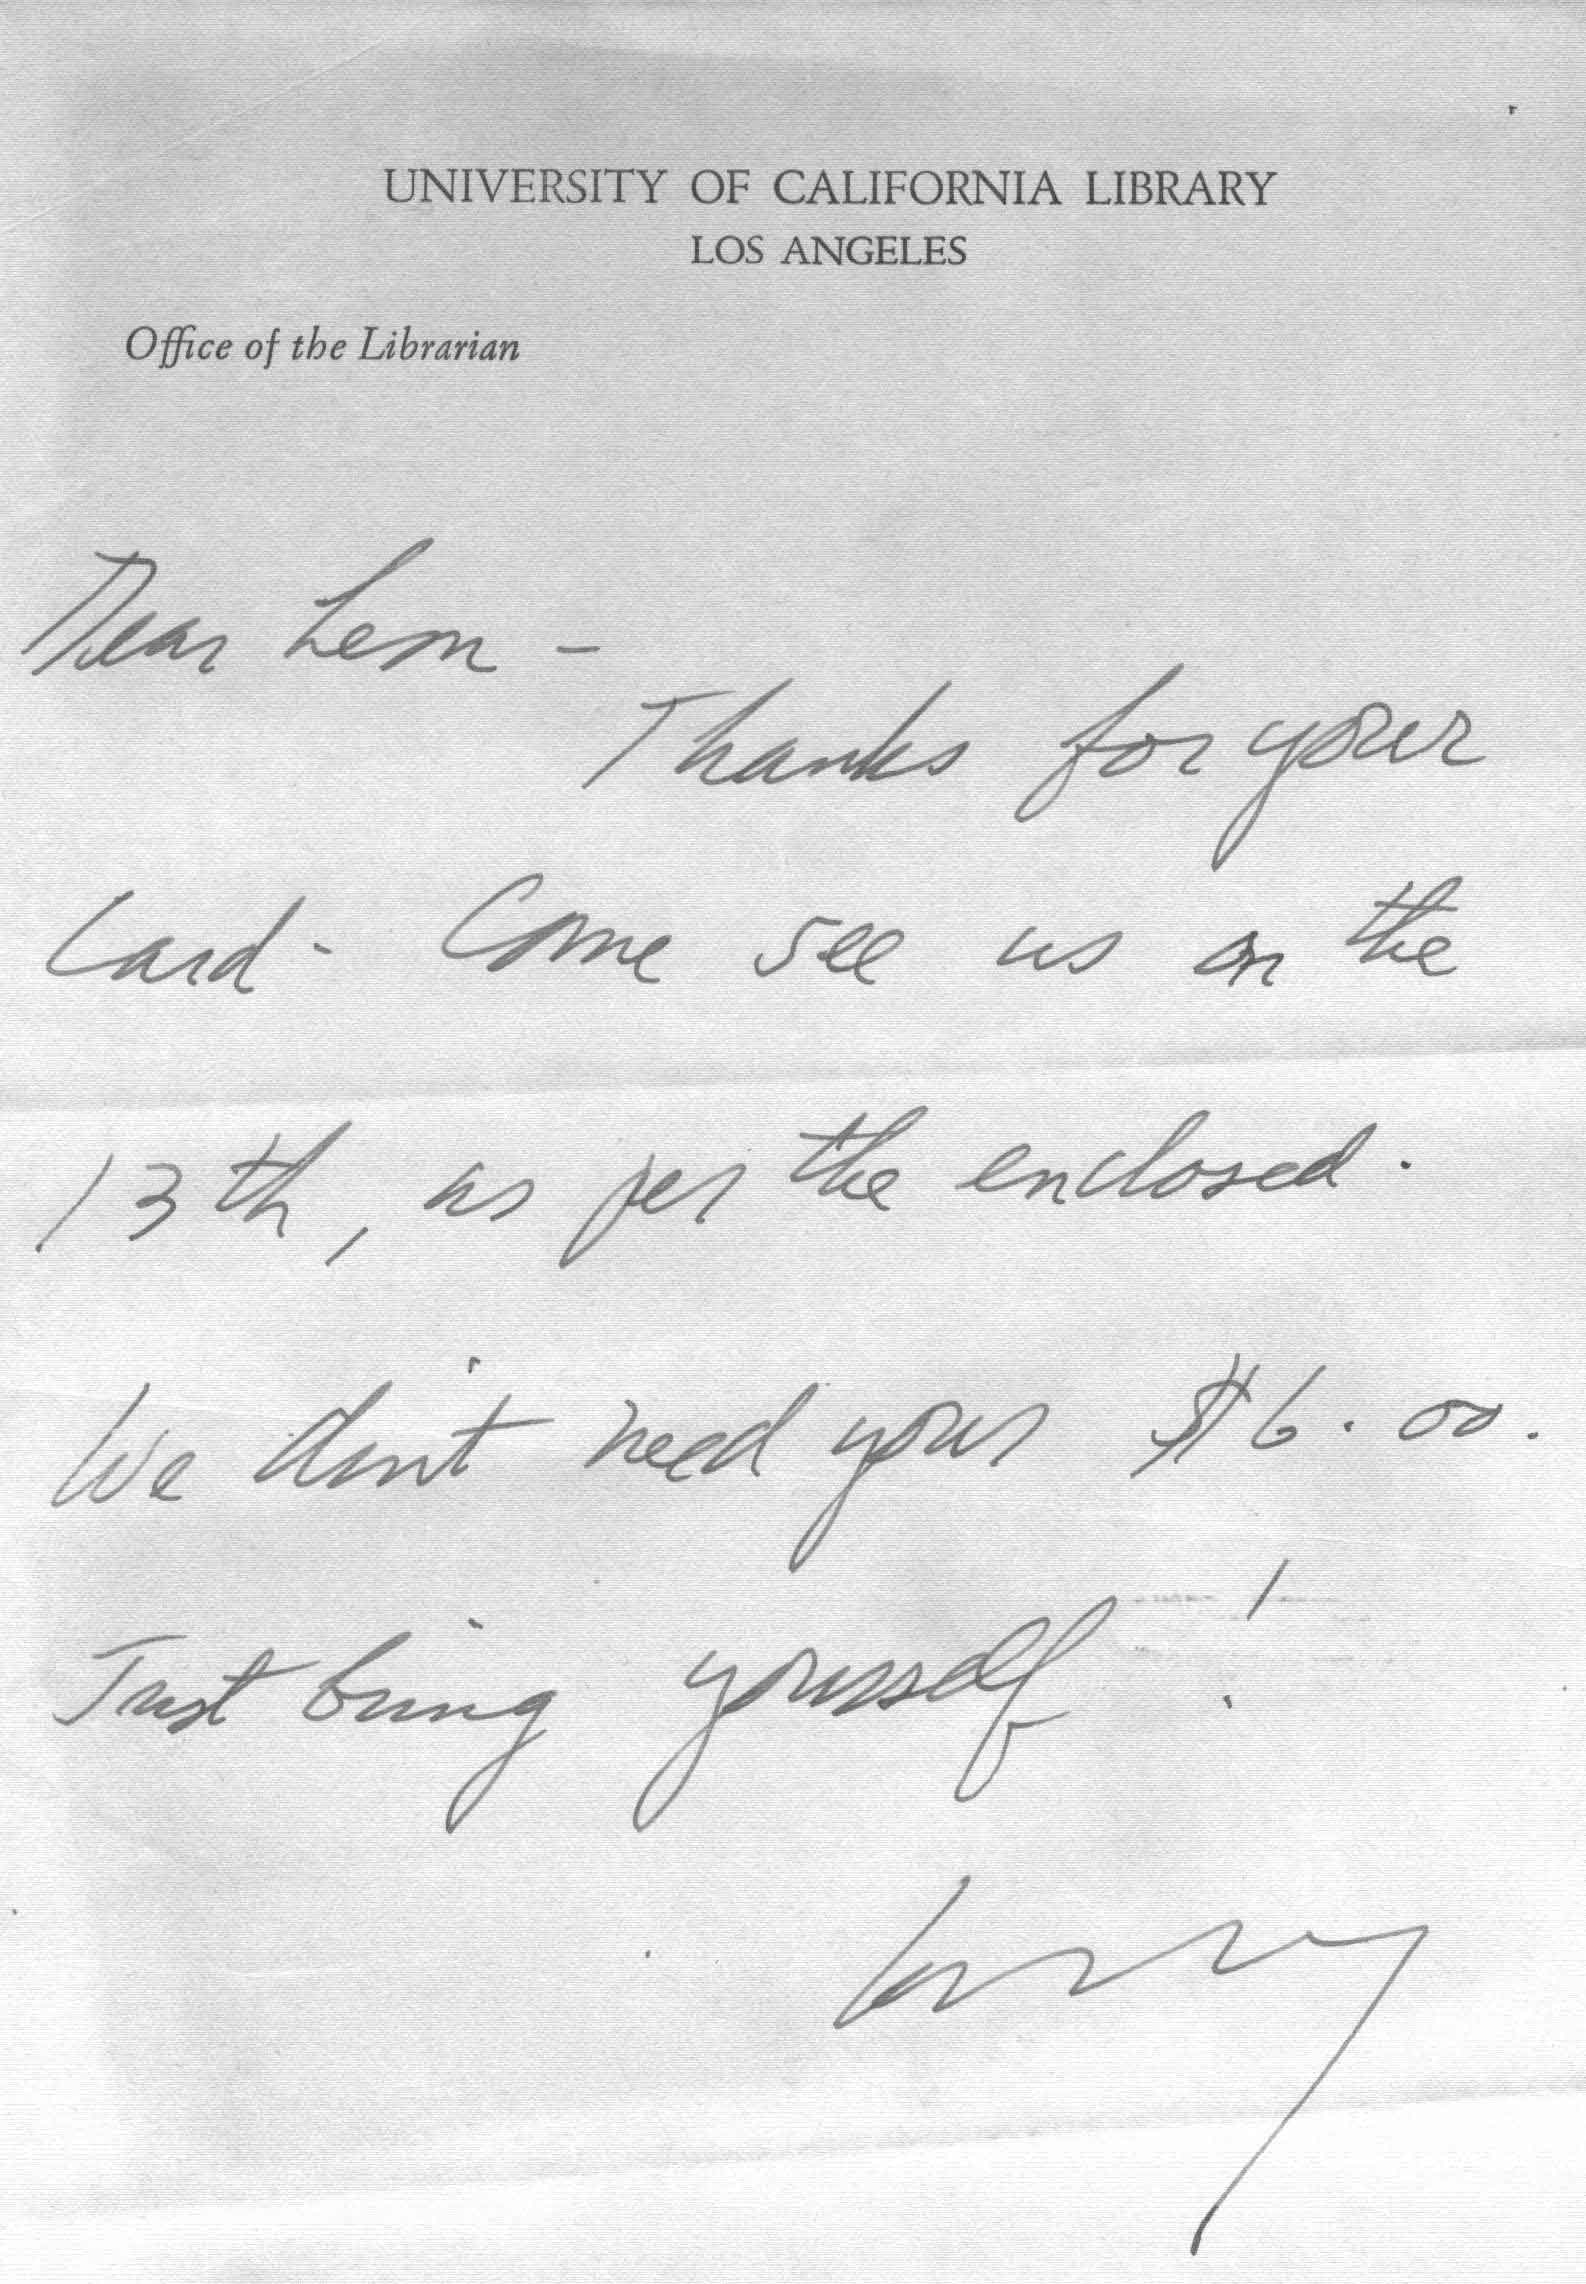 UNIVERSITY OF CALIFORNIA LIBRARY
LOS ANGELES
Office of the Librarian
Dear Leon –
Thanks for your
card - Come see us on the
13th, as per the enclosed.
We don't need your $6.00.
Just bring yourself!